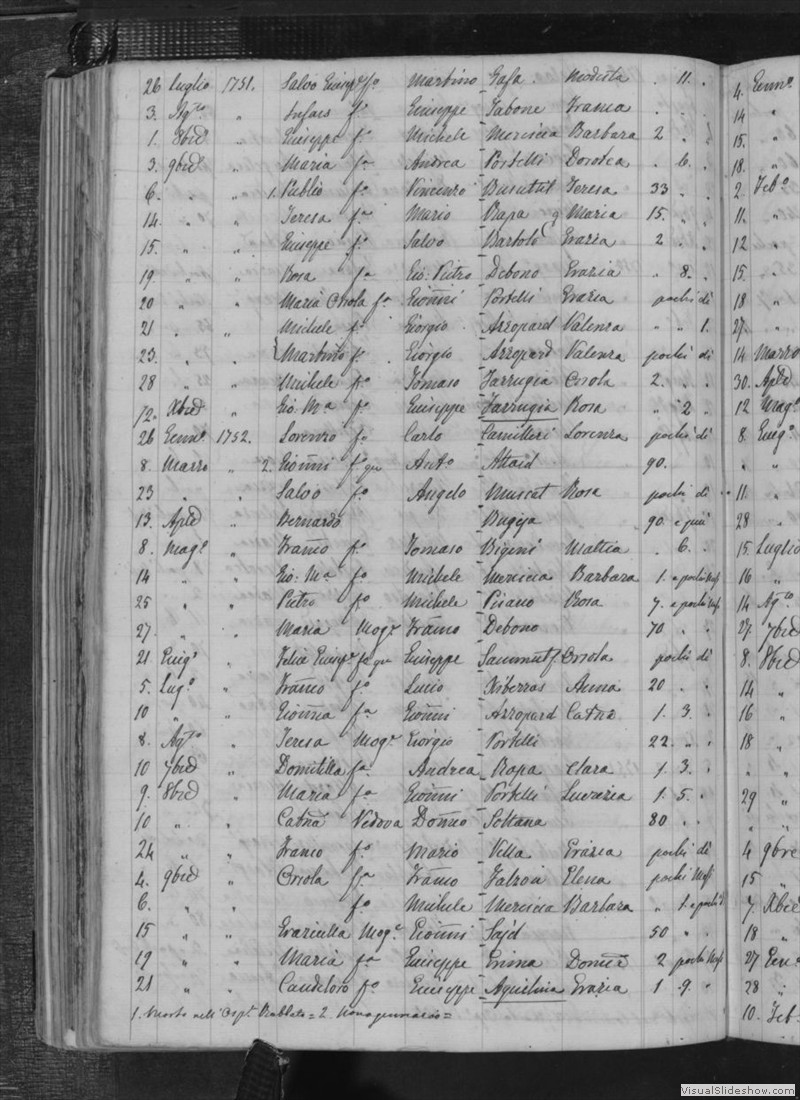 26 Luglio 1751. Salvo Giusp.e f.o Martino Gafa Modesta . 11 .
3. Ag.to " f.o Giuseppe Tabone Franca . . .
1. 8bre " Giuseppe f.o Michele Mercieca Barbara 2 . .
3. 9bre " Maria f.a Andrea Portelli Dorotea . 6 .
6. " " 1. Publio f.o Vincenzo Busuttil Teresa 33 . .
14. " " Teresa f.a Mario Rapa q Maria 15. " .
15. " " Giuseppe f.o Salvo Bartolo Grazia 2 . .
19 " " Rosa f.a Gio: Pietro Debono Grazia " 8. .
20 " " Maria Orsola f.a Gio\u0303nni Portelli Grazia pochi di
21 . " Michele f.o Giorgio Azzopard Valenza " " 1.
23. . " Martino f.o Giorgio Azzopard Valenza pochi di
28 " " Michele f.o Tomaso Farrugia Orsola 2. . .
12. Xbre " Gio: M.a f.o Giuseppe Farrugia Rosa " 2 "
26 Genn.o 1752. Lorenzo f.o Carlo Camilleri Lorenza pochi di
8. Marzo " 2. Gio\u0303nni f.o qu Ant.o Attard 90.
23 " " Salvo f.o Angelo Muscat Rosa pochi di
13. Aple " Bernardo Bugeja 90 e più
8. Mag.o " Franco f.o Tomaso Bigeni Mattia . 6. .
14 " " Gio: M.a f.o Michele Mercieca Barbara 1. e pochi Mesi
25 " " Pietro f.o Michele Pisano Rosa 7. e pochi Mesi
27. " " Maria Mog.e Franco Debono 70 " .
21 Giug.o " Felice Giusp.e f.o qu Giuseppe Sammut f. Orsola pochi di
5. Lug.o " Franco f.o Lucio Xiberras Anna 20 . .
10 " " Gio\u0303nna f.a Gio\u0303nni Azzopard Catna 1. 3. .
8. Ag.to " Teresa Mog.e Giorgio Portelli 22. " .
10 7bre " Domitilla f.a Andrea Rapa Clara 1. 3. .
9. 8bre " Maria f.a Gio\u0303nni Portelli Lucrezia 1. 5. .
10 " . Catna Vedova Domco Soltana 80 . .
24 " " Franco f.o Mario Vella Grazia pochi di
4. 9bre " Orsola f.a Franco Falzon Elena pochi Mesi
6. " . f.o Michele Mercieca Barbara
15 " " Graziella Mog.e Gio\u0303nni Sajd 50 " .
19 " " Maria f.a Giuseppe Emma Domca 2 pochi Mesi
21 " " Candeloro f.o Giuseppe Aquilina Grazia 1. 9. "
1. Morto nell' Osp.le Rabbato = 2. Nonagennario =
4. Genn.o
14 "
15. "
18. "
2. Feb.o
11. "
12 "
15. "
18 "
27. "
14 Marzo
30. Aple
12 Mag.o
8. Giug.o
" "
11. "
28 "
15. Luglio
16 "
14 Ag.to
27. 7bre
8. 8bre
14 "
16 "
18 "
" "
29 "
" "
4 9bre
15 "
7. Xbre
18 "
27 Gen.o
28 "
10. Feb.
VisualSlideshow.com